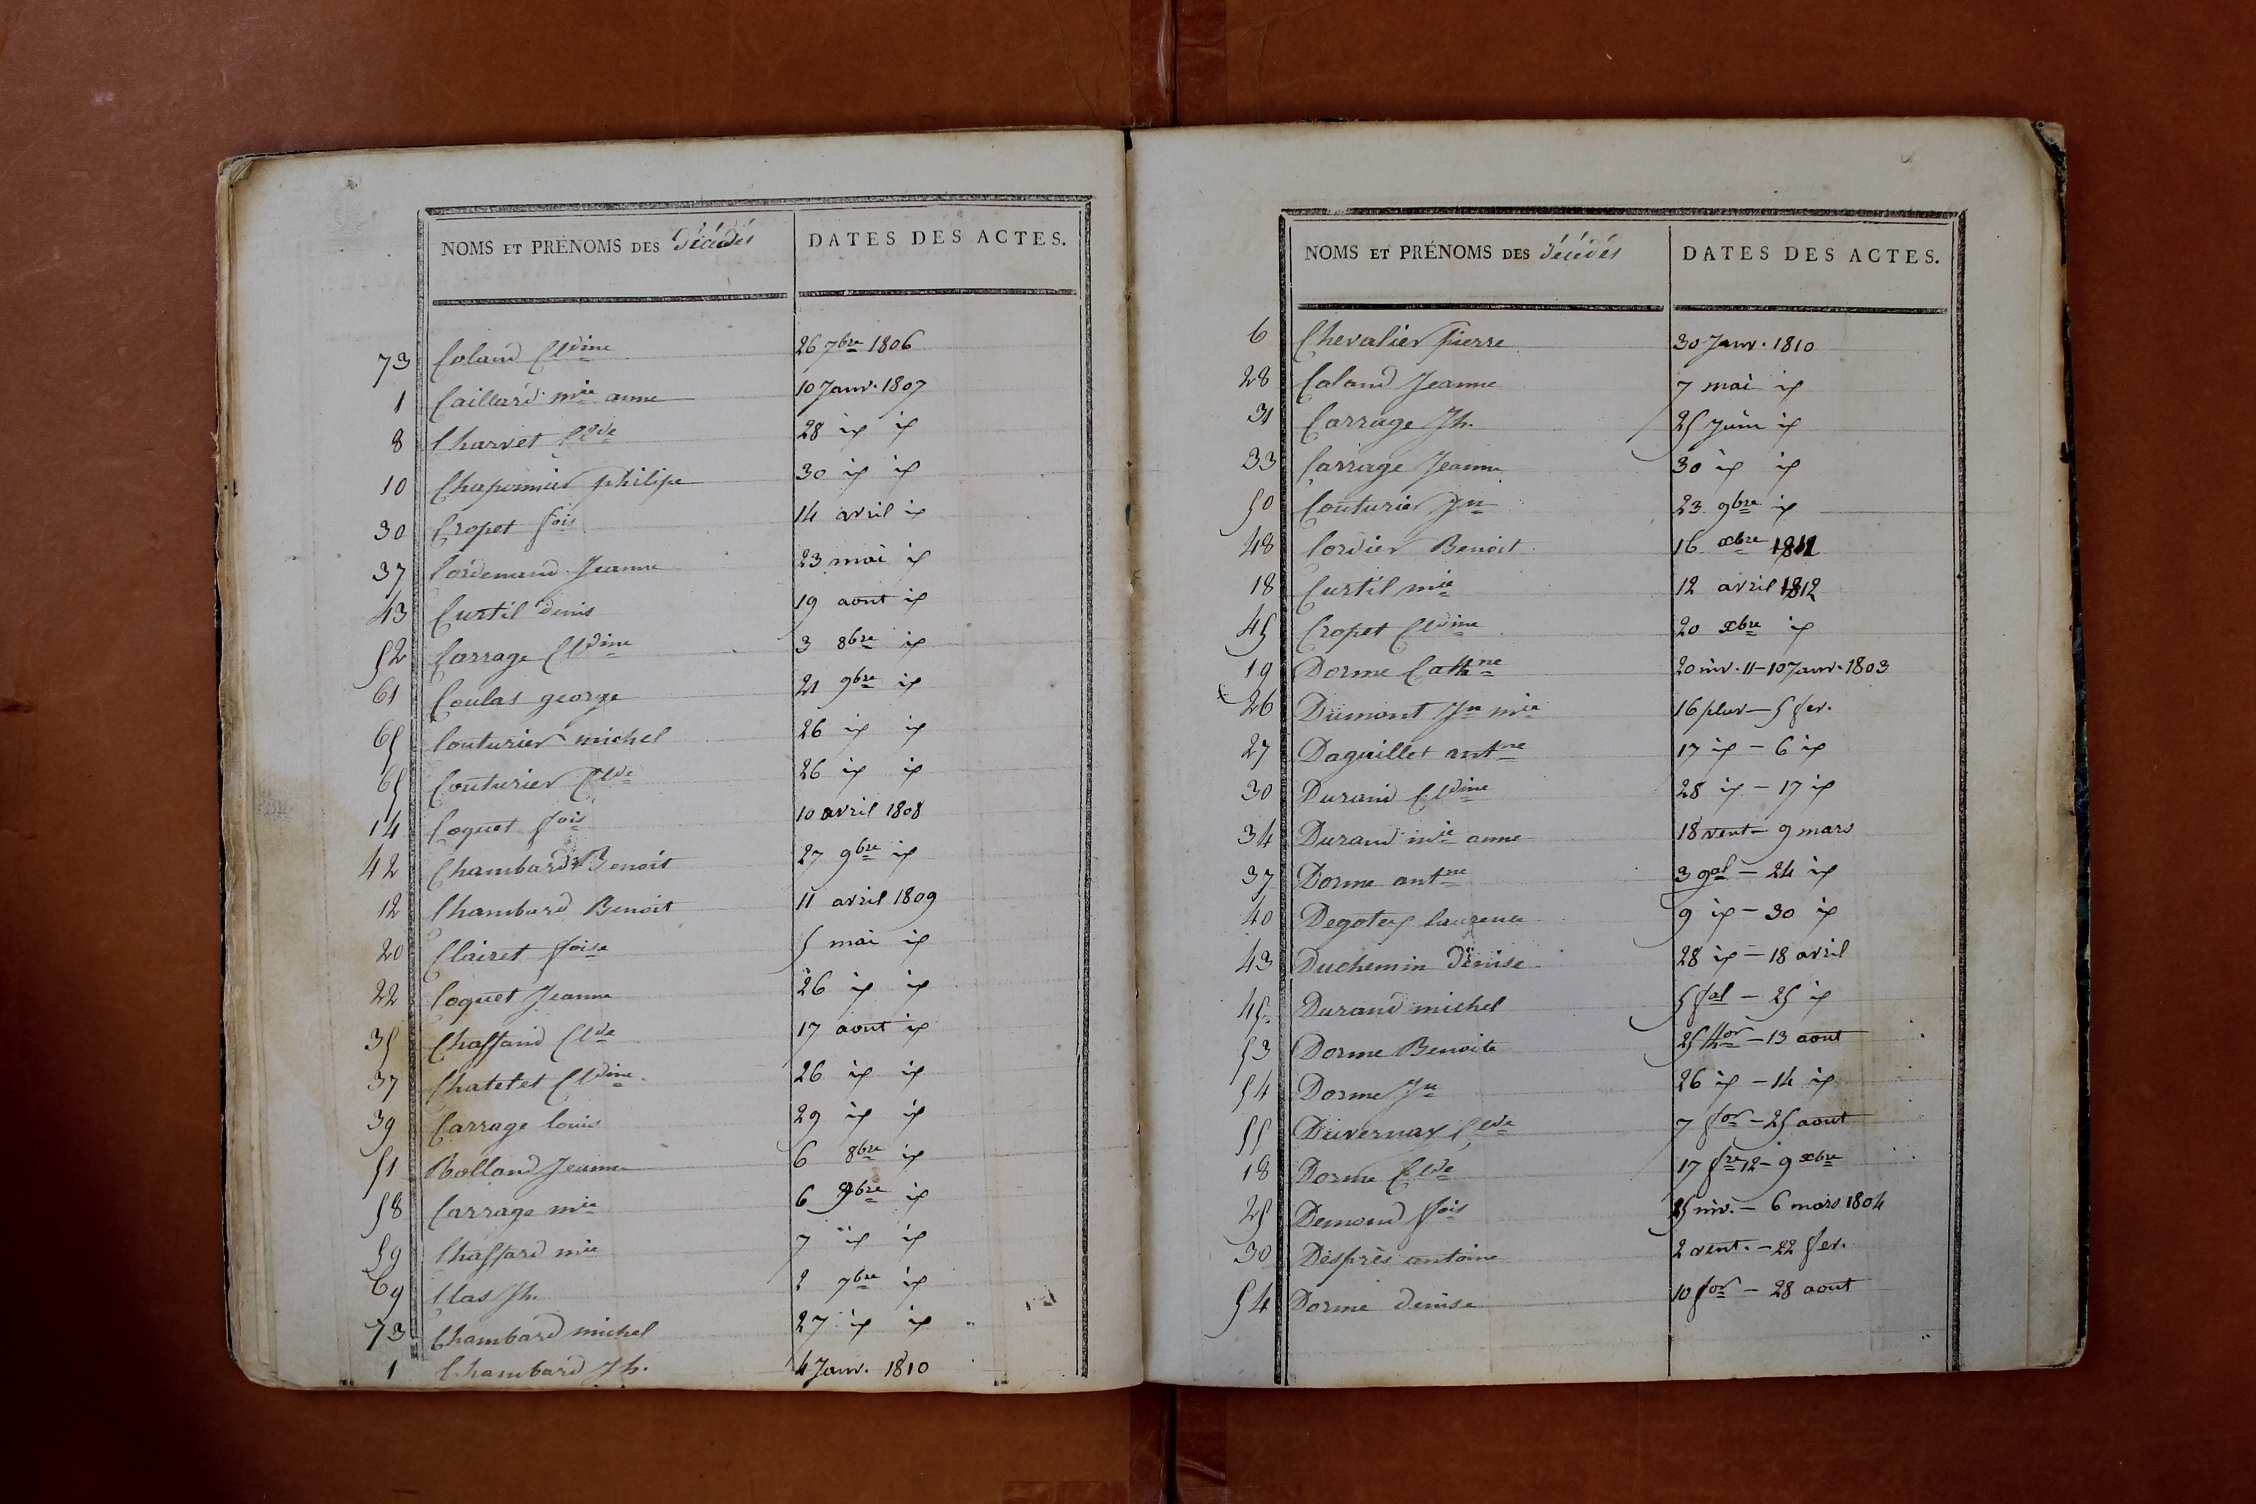 NOMS ET PRÉNOMS DES Décédés DATES DES ACTES.
73 Coland Cldine 26 7bre 1806
1 Caillard mie anne 10 Janv. 1807
8 Charvet Clde 28 id id
10 Chaponnier philipe 30 id id
30 Cropet fois 14 avril id
37 Cordenand Jeanne 23 mai id
43 Curtil denis 19 aout id
52 Carrage Cldine 3 8bre id
61 Coulas george 21 9bre id
65 Couturier michel 26 id id
65 Couturier Clde 26 id id
14 Coquet fois 10 avril 1808
42 Chambard Benoit 27 9bre id
12 Chambard Benoit 11 avril 1809
20 Clairet foise 5 mai id
22 Coquet Jeanne 26 id id
35 Chaffard Clde 17 aout id
37 Chatelet Cldine 26 id id
39 Carrage louis 29 id id
51 Rolland Jeanne 6 8bre id
58 Carrage mie 6 9bre id
59 Chaffard mie 7 id id
69 Clas Jh. 2 7bre id
73 Chambard michel 27 id id
1 Chambard Jh. 4 Janv. 1810
NOMS ET PRÉNOMS DES décédés DATES DES ACTES.
6 Chevalier pierre 30 Janv. 1810
28 Caland Jeanne 7 mai id
31 Carrage Jh. 25 Juin id
33 Carrage Jeanne 30 id id
50 Couturier Jn 23 9bre id
48 Cordier Benoit 16 xbre 1811
18 Curtil mie 12 avril 1812
45 Cropet Cldine 20 xbre id
19 Dorme Cathne 20 niv. 11 - 10 Janv. 1803
26 Dumont Jn mie 16 pluv - 5 fer.
27 Daguillet antne 17 id - 6 id
30 Durand Cldine 28 id - 17 id
34 Durand mie anne 18 vent - 9 mars
37 Dorme antne 3 gal - 24 id
40 laurence 9 id - 30 id
43 Duchemin Denise 28 id - 18 avril
45 Durand michel 5 fal - 25 id
53 Dorme Benoite 25 thor - 13 aout
54 Dorme Jn 26 id - 14 id
55 Duvernay Clde 7 for - 25 aout
18 Dorme Clde 17 fre 12 - 9 xbre
25 Demond fois 15 niv. - 6 mars 1804
30 Després antoine 2 vent. - 22 fer.
54 Dorme denise 10 for - 28 aout